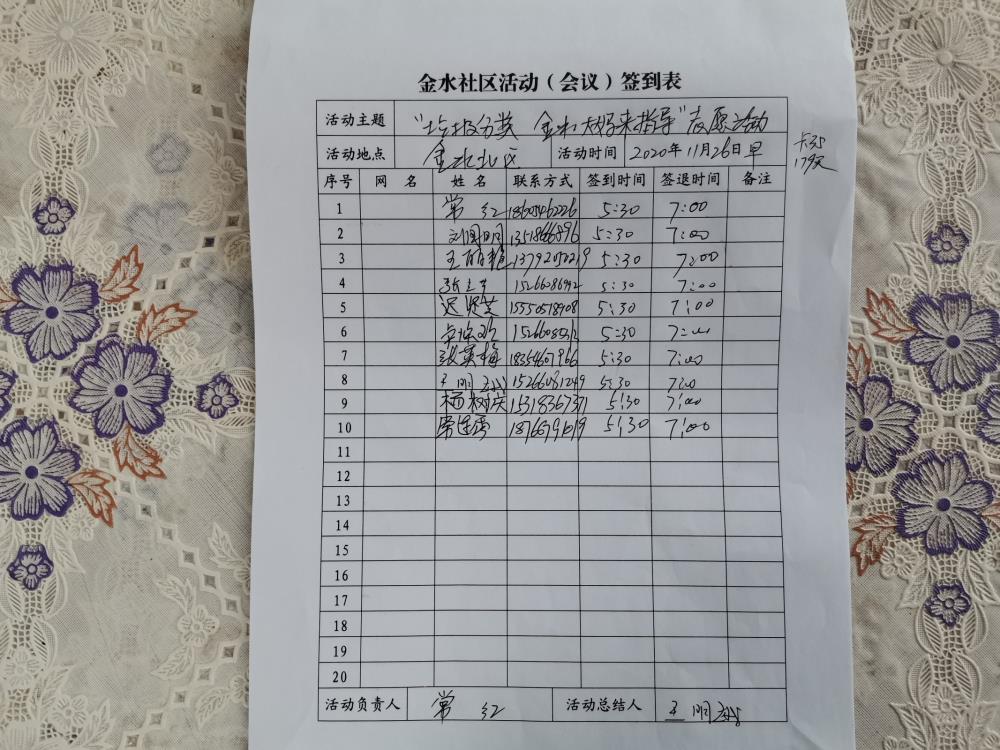 金水社区活动（会议）签到表
活动主题 "垃圾分类 金水大妈来指导"志愿活动
活动地点 金水北区 活动时间 2020年11月26日早
卡35
179天
序号 网 名 姓 名 联系方式 签到时间 签退时间 备注
1 常 红 5:30 7:00
2 刘国明 5:30 7:00
3 王丽艳 5:30 7:00
4 5:30 7:00
5 迟贤芝 15550518908 5:30 7:00
6 5:30 7:00
7 张英梅 18354601966 5:30 7:00
8 王明 15266081249 5:30 7:00
9 杨树庆 15318367371 5:30 7:00
10 常连秀 5:30 7:00
11
12
13
14
15
16
17
18
19
20
活动负责人 常 红 活动总结人 王明